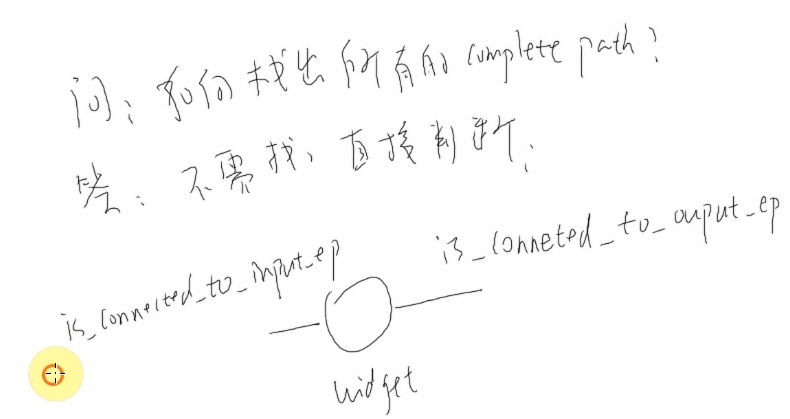 问:如何找出所有的complete path?
答:不需找,直接判断:
is_connected_to_input_ep
is_conneted_to_ouput_ep
widget